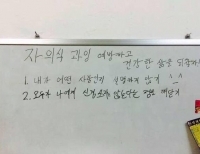 자의식 과잉 예방하고
건강한 삶을
1. 내가 어떤 사람인지 설명하지 않기 ^_^
2. 모두가 나에게 신경쓰지 않는다는 것을 깨닫기